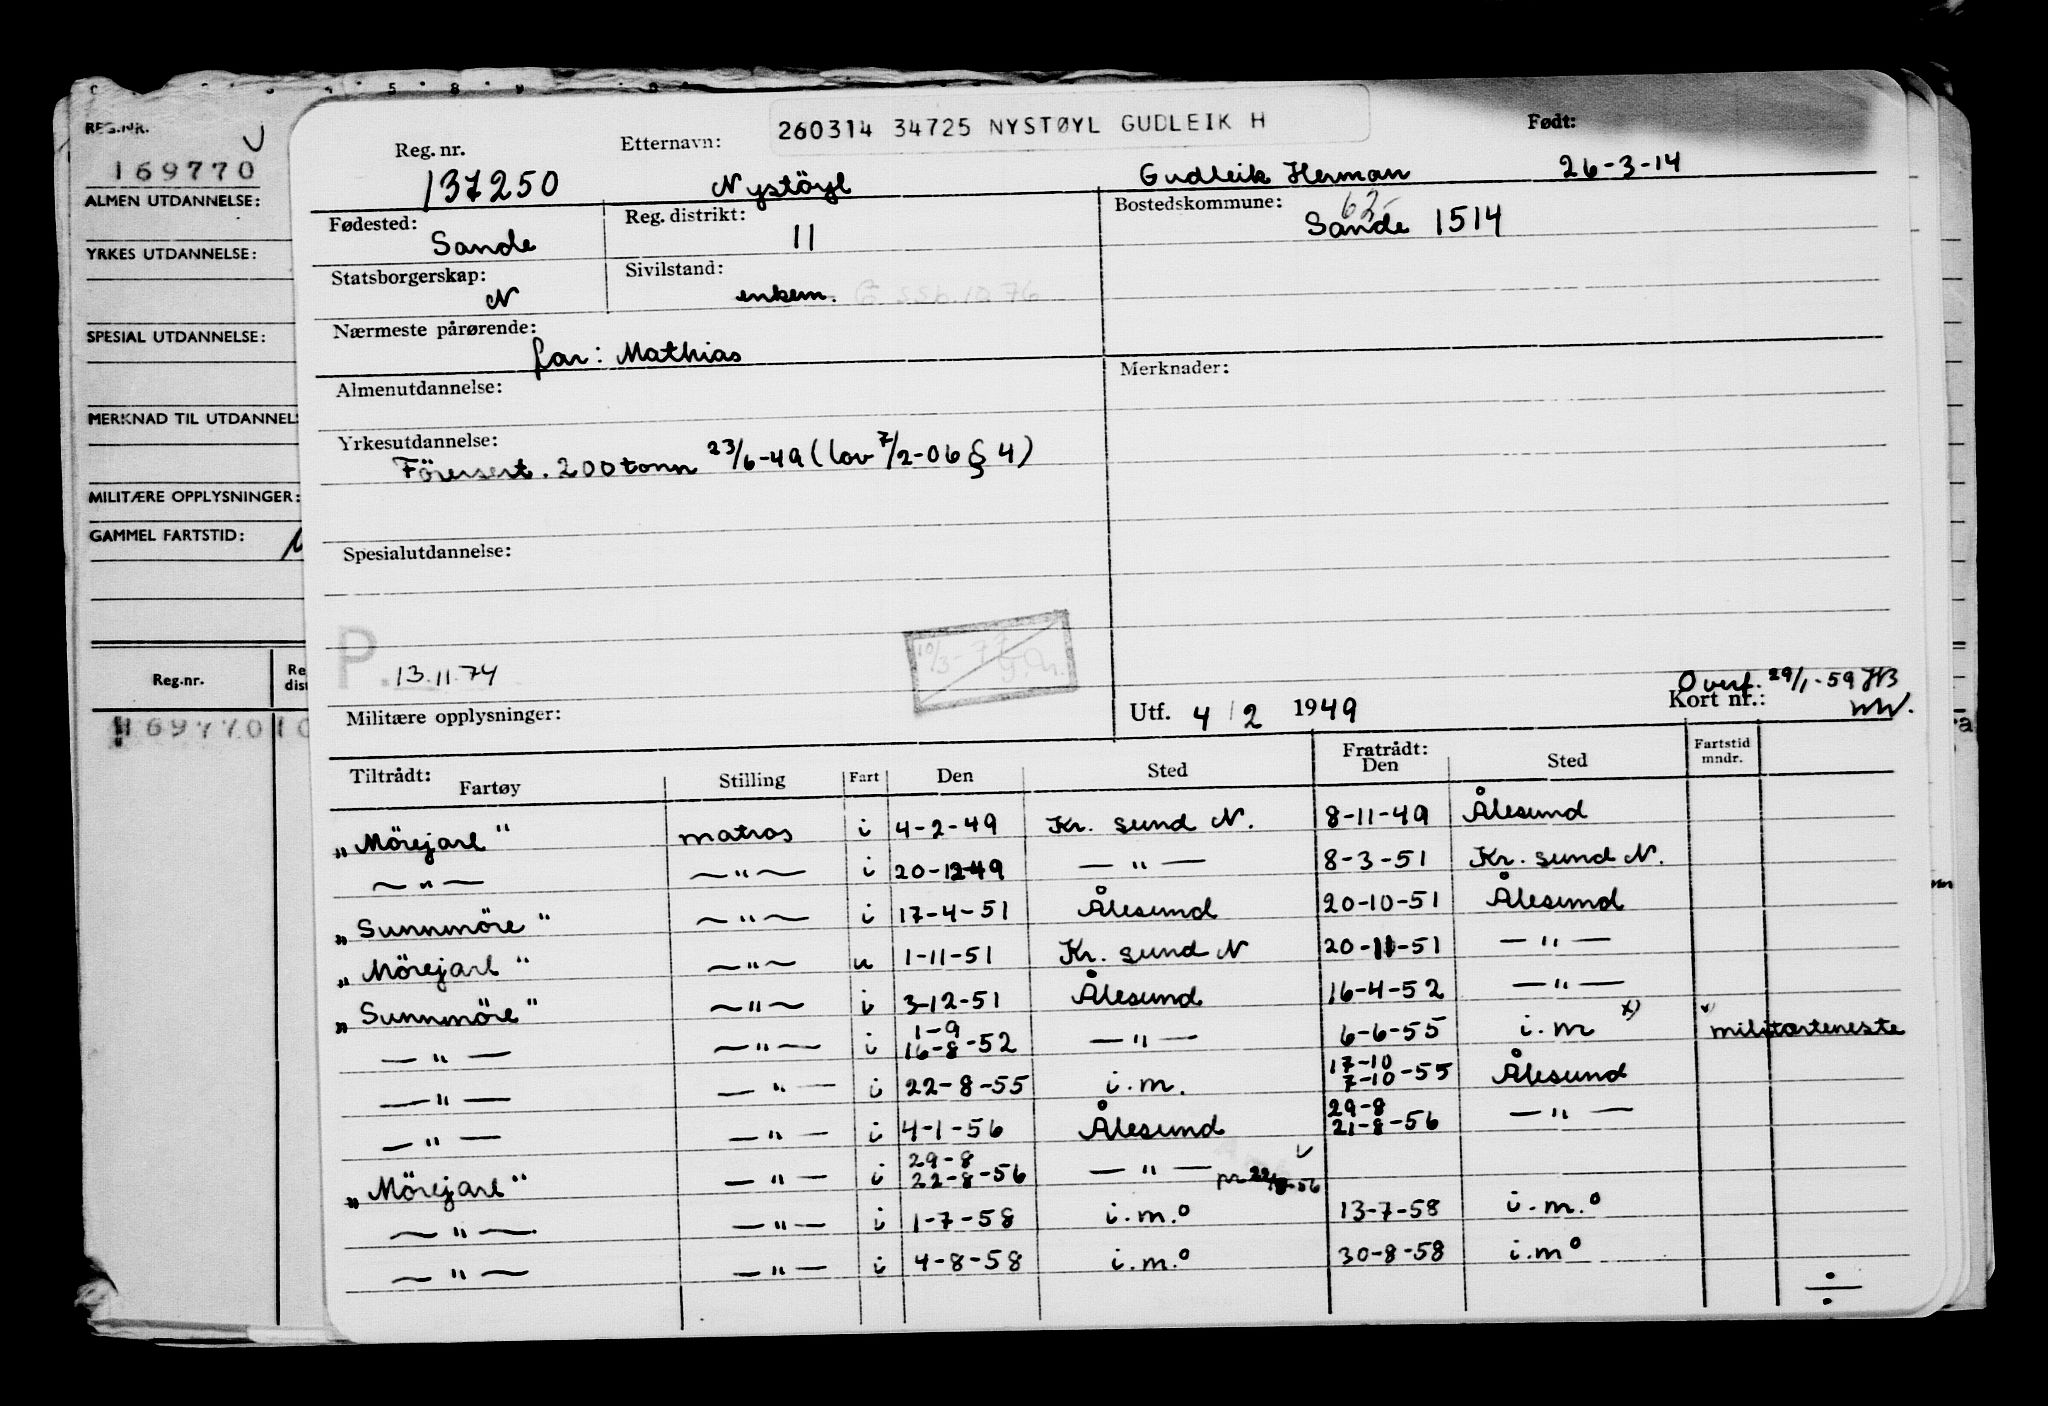 REG.NR.
169770
ALMEN UTDANNELSE:
YRKES UTDANNELSE:
SPESIAL UTDANNELSE:
MERKNAD TIL UTDANNELS
MILITÆRE OPPLYSNINGER:
GAMMEL FARTSTID:
Reg.nr. Re dist
169770 10
260314 34725 NYSTØYL GUDLEIK H
Reg. nr. Etternavn: Født:
137250 Nystöyl Gudleik Herman 26-3-14
Fødested: Reg. distrikt: Bostedskommune: 62-
Sande 11 Sande 1514
Statsborgerskap: Sivilstand:
N enkem. G. SSb. 10 76
Nærmeste pårørende:
far: Mathias
Almenutdannelse: Merknader:
Yrkesutdannelse:
Försert. 200 tonn 23/6-49 (lov 7/2-06 § 4)
Spesialutdannelse:
P. 13.11.74
10/3-77
Militære opplysninger: Utf. 4/2 1949 Kort nr.:
Overf. 29/1-59 HB
Tiltrådt: Fratrådt:
Fartøy Stilling Fart Den Sted Den Sted Fartstid mndr.
„Mörejarl" matros i 4-2-49 Kr. sund N. 8-11-49 Ålesund
— " — — " — i 20-12-49 — " — 8-3-51 Kr. sund N.
„Sunnmöre" — " — i 17-4-51 Ålesund 20-10-51 Ålesund
„Mörejarl" — " — u 1-11-51 Kr. sund N 20-11-51 — " —
„Sunnmöre" — " — i 3-12-51 Ålesund 16-4-52 — " —
— " — — " — i 1-9 16-8-52 — " — 6-6-55 i.m x) militærteneste
— " — — " — i 22-8-55 i.m. 17-10 7-10-55 Ålesund
— " — — " — i 4-1-56 Ålesund 29-8 21-8-56 — " —
„Mörejarl" — " — i 29-8 22-8-56 — " — pr 22/8-56
— " — — " — i 1-7-58 i.m.o 13-7-58 i.m.o
— " — — " — i 4-8-58 i.m.o 30-8-58 i.mo
÷